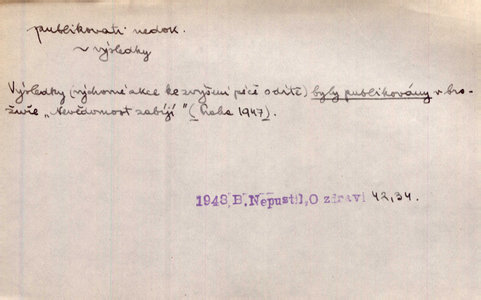 publikovati nedok.
~ výsledky
Výsledky (výchovné akce ke zvýšení péče o dítě) byly publikovány v bro-
žuře „Nevědomost zabíjí" (Praha 1947).
1948, B. Nepustil, O zdraví 42, 34.